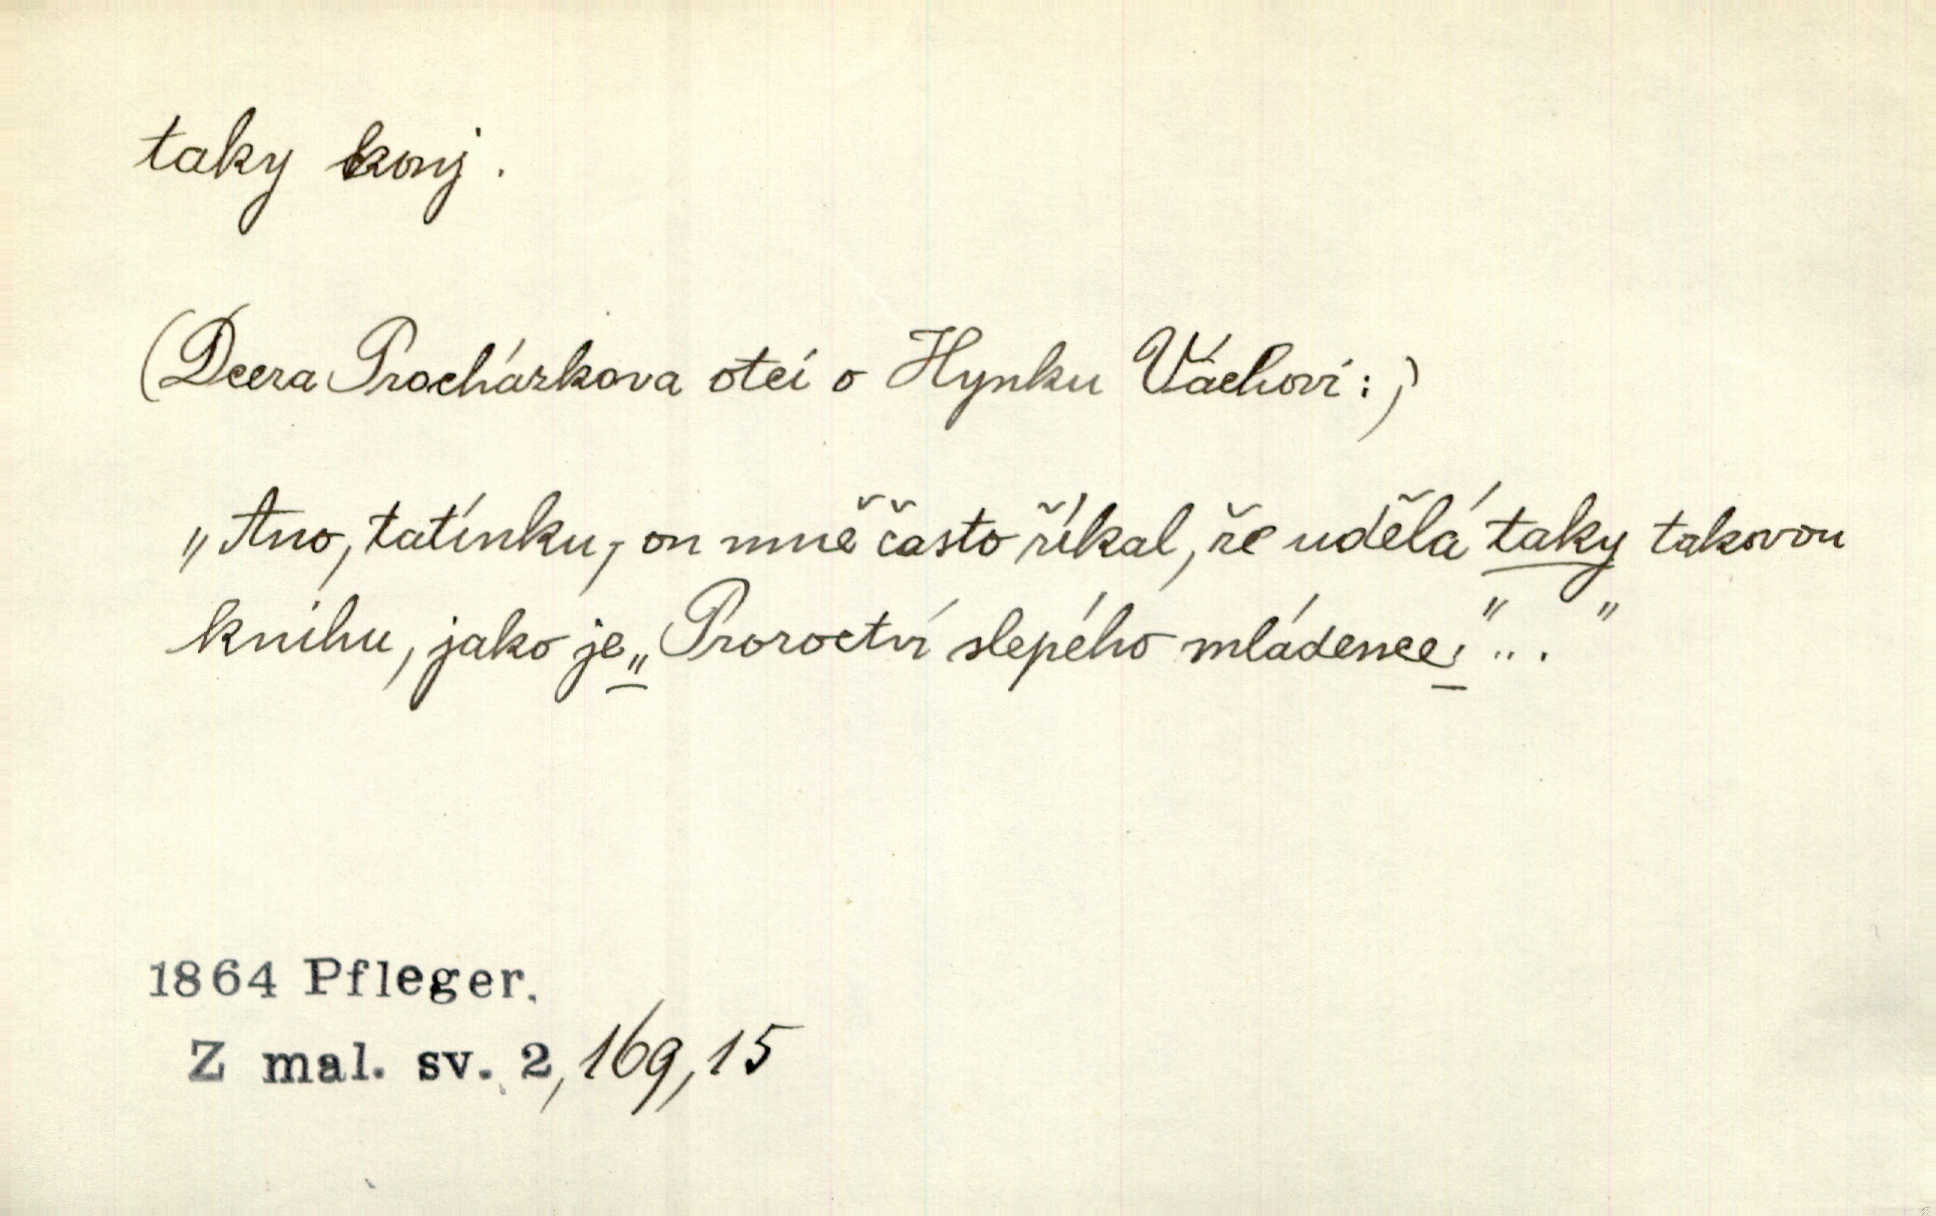 taky konj.
(Dcera Procházkova otci o Hynku Váchovi:)
„Ano, tatínku, on mně často říkal, že udělá taky takovou
knihu, jako je „Proroctví slepého mládence;"... "
1864 Pfleger.
Z mal. sv. 2, 169, 15